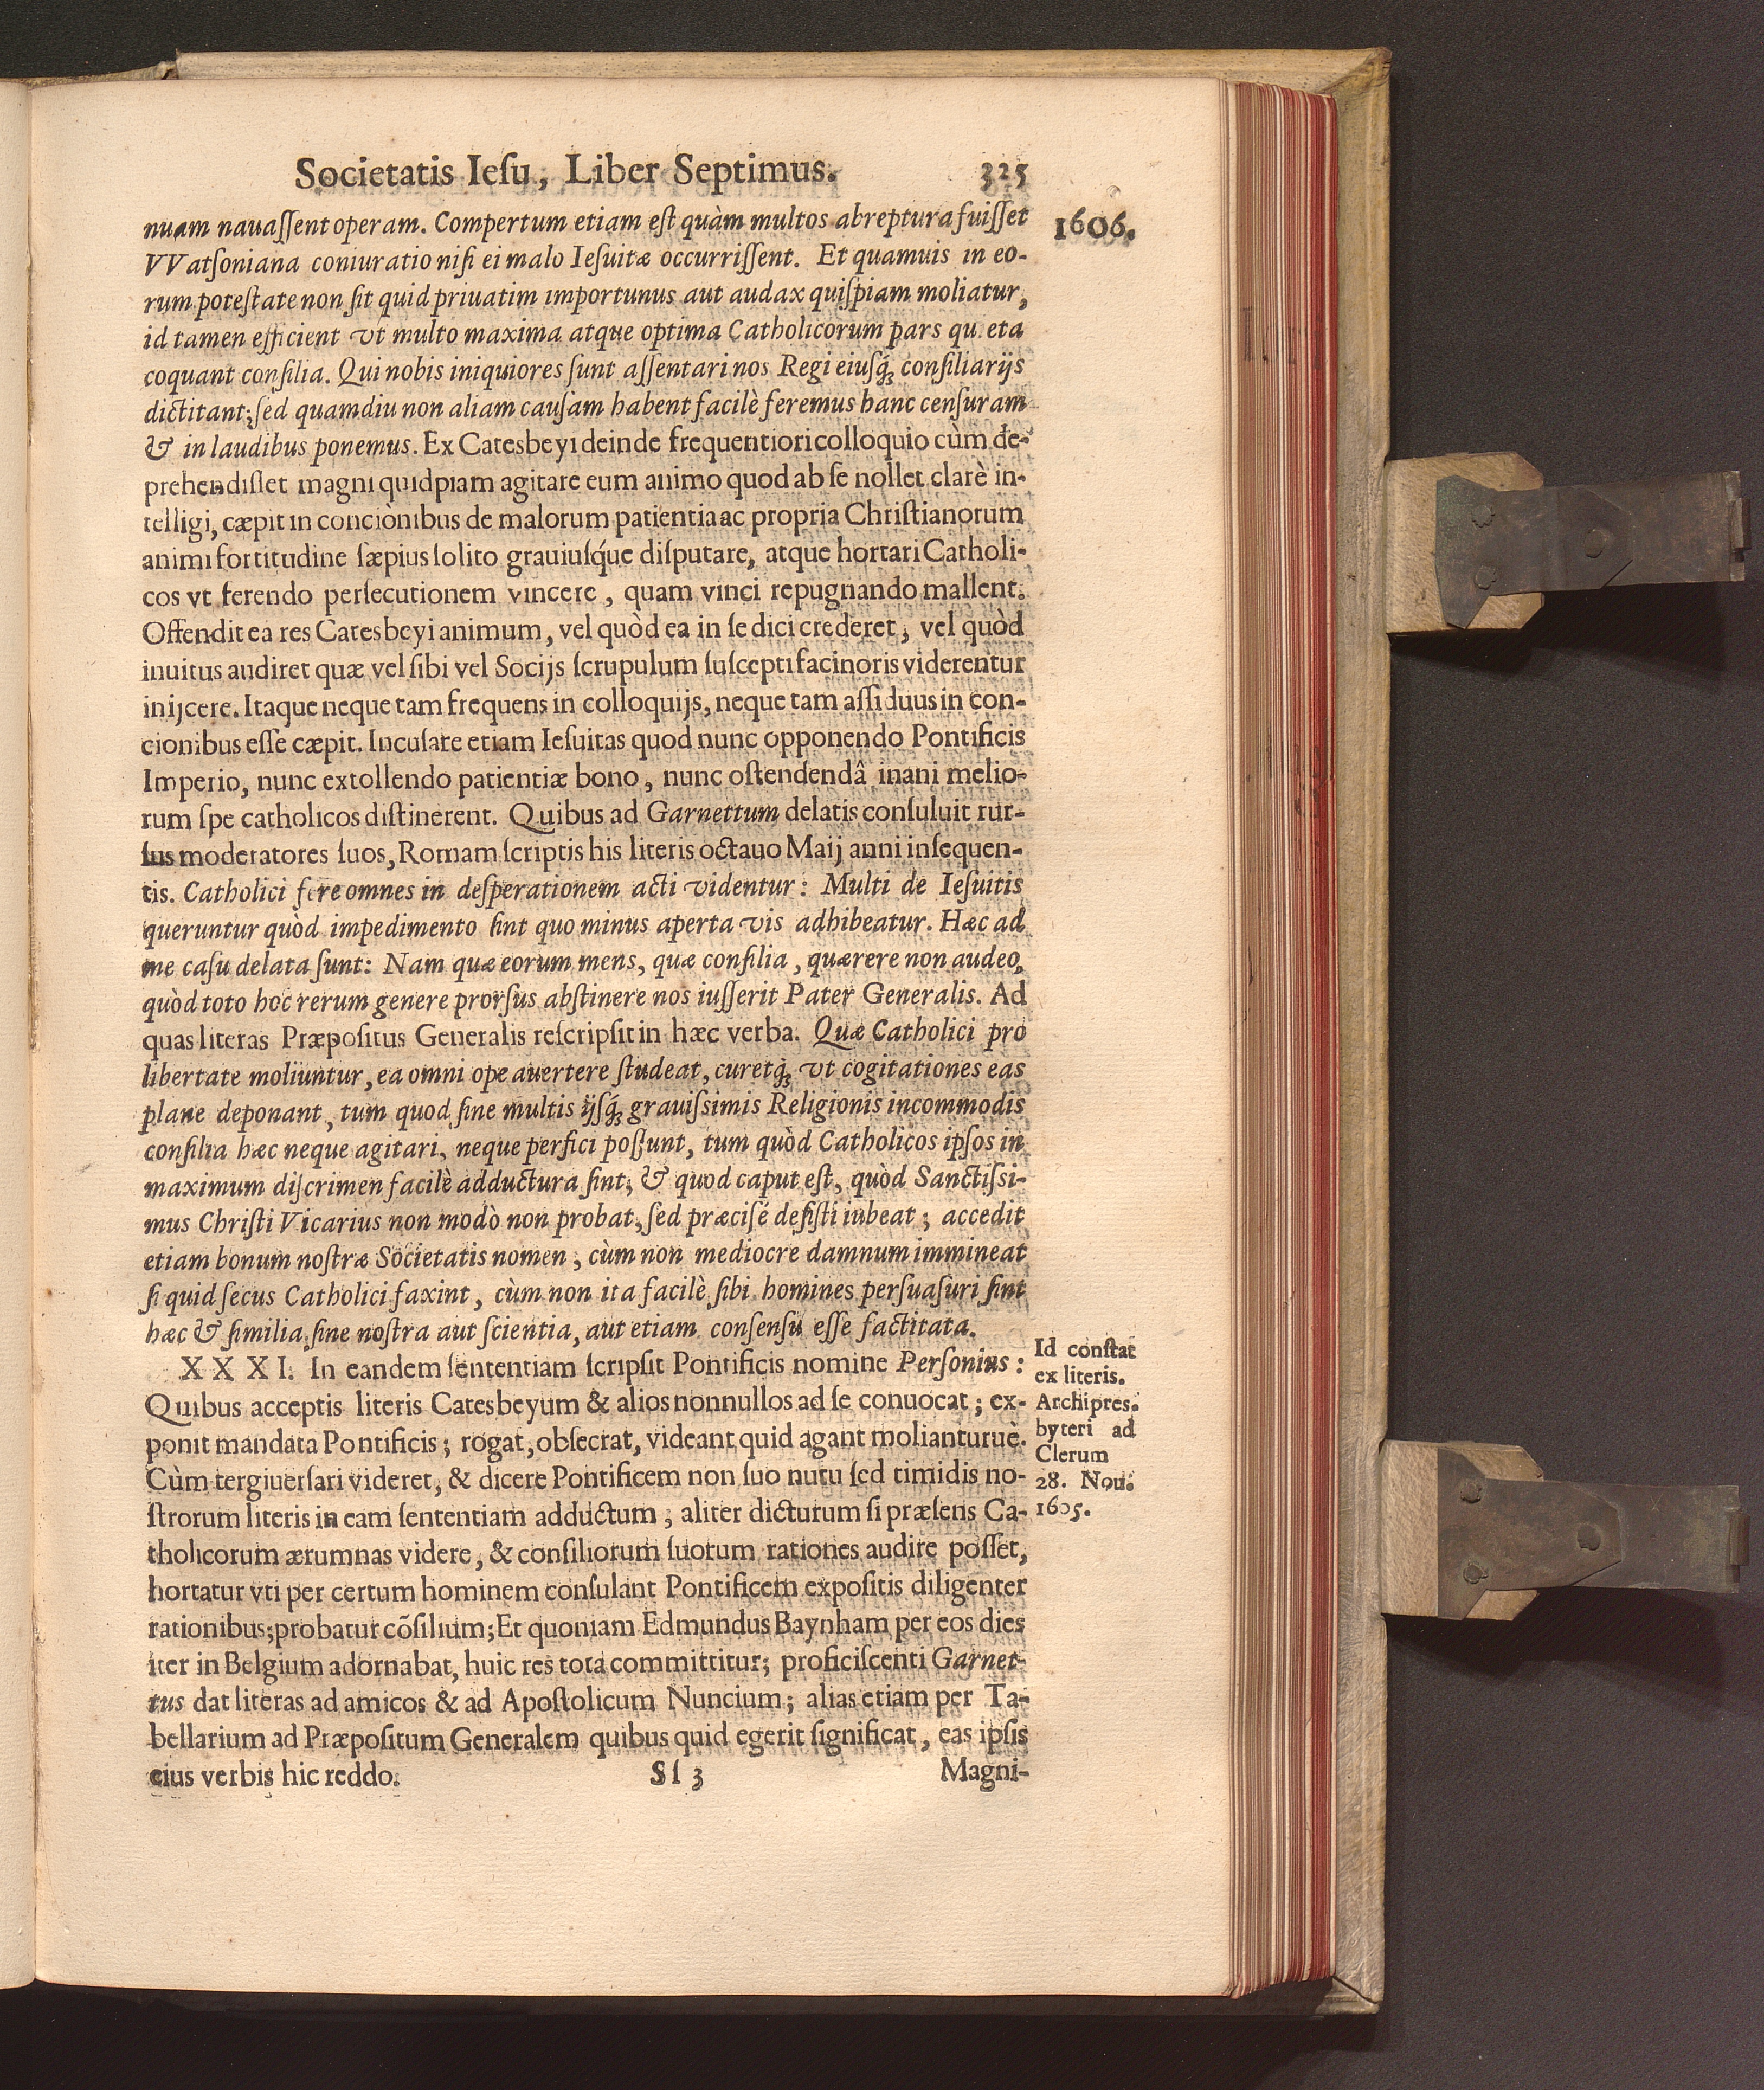 Societatis Ieſu, Liber Septimus. 325
1606.
nuam nauaſſent operam. Compertum etiam eſt quàm multos abreptura fuiſſet
VVatſoniana coniuratio niſi ei malo Ieſuitæ occurriſſent. Et quamuis in eo-
rum poteſtate non ſit quid priuatim importunus aut audax quiſpiam moliatur,
id tamen efficient vt multo maxima atque optima Catholicorum pars qu eta
coquant conſilia. Qui nobis iniquiores ſunt aſſentari nos Regi eiuſq́ꝫ conſiliarijs
dictitant; ſed quamdiu non aliam cauſam habent facilè feremus hanc cenſuram
& in laudibus ponemus. Ex Catesbeyi deinde frequentiori colloquio cùm de-
prehendiſlet magni quidpiam agitare eum animo quod ab ſe nollet clarè in-
telligi, cæpit in conciònibus de malorum patientia ac propria Chriſtianorum
animi fortitudine ſæpius ſolito grauiuſq́ue diſputare, atque hortari Catholi-
cos vt ferendo perſecutionem vincere, quam vinci repugnando mallent.
Offendit ea res Catesbeyi animum, vel quòd ea in ſe dici crederet, vel quòd
inuitus audiret quæ vel ſibi vel Socijs ſcrupulum ſuſcepti facinoris viderentur
inijcere. Itaque neque tam frequens in colloquijs, neque tam aſſiduus in con-
cionibus eſſe cæpit. Incuſare etiam Ieſuitas quod nunc opponendo Pontificis
Imperio, nunc extollendo patientiæ bono, nunc oſtendendâ inani melio-
rum ſpe catholicos diſtinerent. Quibus ad Garnettum delatis conſuluit rur-
ſus moderatores ſuos, Romam ſcriptis his literis octauo Maij anni inſequen-
tis. Catholici fere omnes in deſperationem acti videntur: Multi de Ieſuitis
queruntur quòd impedimento ſint quo minus aperta vis adhibeatur. Hæc ad
me caſu delata ſunt: Nam quæ eorum mens, quæ conſilia, quærere non audeo,
quòd toto hoc rerum genere prorſus abſtinere nos iuſſerit Pater Generalis. Ad
quas literas Præpoſitus Generalis reſcripſit in hæc verba. Quæ Catholici pro
libertate moliuntur, ea omni ope auertere ſtudeat, curetq́ꝫ vt cogitationes eas
plane deponant, tum quod ſine multis ijſq́ꝫ grauiſsimis Religionis incommodis
conſilia hæc neque agitari, neque perfici poſſunt, tum quòd Catholicos ipſos in
maximum diſcrimen facilè adductura ſint; & quod caput eſt, quòd Sanctiſsi-
mus Chriſti Vicarius non modò non probat, ſed præciſé deſiſti iubeat; accedit
etiam bonum noſtræ Societatis nomen, cùm non mediocre damnum immineat
ſi quid ſecus Catholici faxint, cùm non ita facilè ſibi homines perſuaſuri ſint
hæc & ſimilia ſine noſtra aut ſcientia, aut etiam conſenſu eſſe factitata.
XXXI. In eandem ſententiam ſcripſit Pontificis nomine Perſonius:
Quibus acceptis literis Catesbeyum & alios nonnullos ad ſe conuocat; ex-
ponit mandata Pontificis; rogat, obſecrat, videant quid agant molianturuè.
Cùm tergiuerſari videret, & dicere Pontificem non ſuo nutu ſed timidis no-
ſtrorum literis in eam ſententiam adductum, aliter dicturum ſi præſens Ca-
tholicorum ærumnas videre, & conſiliorum ſuorum rationes audire poſſet,
hortatur vti per certum hominem conſulant Pontificem expoſitis diligenter
rationibus; probatur cõſilium; Et quoniam Edmundus Baynham per eos dies
iter in Belgium adornabat, huic res tota committitur; proficiſcenti Garnet-
tus dat literas ad amicos & ad Apoſtolicum Nuncium; alias etiam per Ta-
bellarium ad Præpoſitum Generalem quibus quid egerit ſignificat, eas ipſis
eius verbis hic reddo.
Sſ 3 Magni-
Id conſtat
ex literis.
Archipres.
byteri ad
Clerum
28. Nou.
1605.